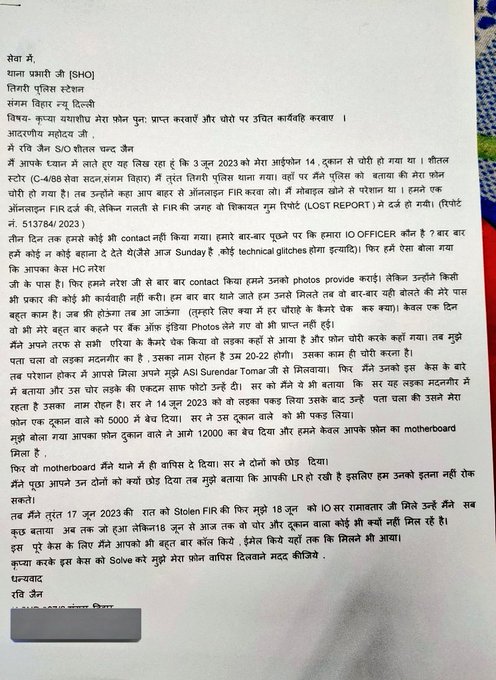 सेवा में,
थाना प्रभारी जी [SHO]
तिगरी पुलिस स्टेशन
संगम विहार न्यू दिल्ली
विषय- कृप्या यथाशीघ्र मेरा फ़ोन पुन: प्राप्त करवाएँ और चोरो पर उचित कार्यवहि करवाए ।
आदरणीय महोदय जी ,
में रवि जैन S/O शीतल चन्द जैन
मैं आपके ध्यान में लाते हुए यह लिख रहा हूं कि 3 जून 2023 को मेरा आईफोन 14 , दुकान से चोरी हो गया था । शीतल
स्टोर (C-4/88 सेवा सदन,संगम विहार) में तुरंत तिगरी पुलिस थाना गया। वहां पर मैंने पुलिस को बताया की मेरा फोन
चोरी हो गया है। तब उन्होंने कहा आप बाहर से ऑनलाइन FIR करवा लो। मैं मोबाइल खोने से परेशान था । हमने एक
ऑनलाइन FIR दर्ज की, लेकिन गलती से FIR की जगह वो शिकायत गुम रिपोर्ट (LOST REPORT ) मे दर्ज हो गयी। (रिपोर्ट
नं. 513784/ 2023 )
तीन दिन तक हमसे कोई भी contact नहीं किया गया। हमारे बार-बार पूछने पर कि हमारा IO OFFICER कौन है ? बार बार
हमें कोई न कोई बहाना दे देते थे(जैसे आज Sunday है ,कोई technical glitches होगा इत्यादि)। फिर हमें ऐसा बोला गया
कि आपका केस HC नरेश
जी के पास है। फिर हमने नरेश जी से बार बार contact किया हमने उनको photos provide कराई। लेकिन उन्होंने किसी
भी प्रकार की कोई भी कार्यवाही नहीं करी। हम बार बार थाने जाते हम उनसे मिलते तब वो बार-बार यही बोलते की मेरे पास
बहुत काम है। जब फ्री होऊंगा तब आ जाऊंगा (तुम्हारे लिए क्या में हर चौराहे के कैमरे चेक करु क्या)। केवल एक दिन
वो भी मेरे बहुत बार कहने पर बैंक ऑफ़ इंडिया Photos लेने गए वो भी प्राप्त नहीं हुई।
मैंने अपने तरफ से सभी एरिया के कैमरे चेक किया वो लड़का कहाँ से आया है और फोन चोरी करके कहाँ गया। तब मुझे
पता चला वो लड़का मदनगीर का है , उसका नाम रोहन है उम्र 20-22 होगी। उसका काम ही चोरी करना है।
तब परेशान होकर में आपसे मिला अपने मुझे ASI Surendar Tomar जी से मिलवाया। फिर मैंने उनको इस केस के बारे
में बताया और उस चोर लड़के की एकदम साफ फोटो उन्हें दी। सर को मैंने ये भी बताया कि सर यह लड़का मदनगीर में
रहता है उसका नाम रोहन है। सर ने 14 जून 2023 को वो लड़का पकड़ लिया उसके बाद उन्हें पता चला की उसने मेरा
फोन एक दूकान वाले को 5000 में बेच दिया। सर ने उस दूकान वाले को भी पकड़ लिया।
मुझे बोला गया आपका फ़ोन दुकान वाले ने आगे 12000 का बेच दिया और हमने केवल आपके फोन का motherboard
मिला है ,
फिर वो motherboard मैंने थाने में ही वापिस दे दिया। सर ने दोनों को छोड़ दिया।
मैंने पूछा आपने उन दोनों को क्यों छोड़ दिया तब मुझे बताया कि आपकी LR हो रखी है इसलिए हम उनको इतना नहीं रोक
सकते।
तब मैंने तुरंत 17 जून 2023 की रात को Stolen FIR की फिर मुझे 18 जून को IO सर रामावतार जी मिले उन्हें मैंने सब
कुछ बताया अब तक जो हुआ लेकिन18 जून से आज तक वो चोर और दूकान वाला कोई भी क्यों नहीं मिल रहें है।
इस पूरे केस के लिए मैंने आपको भी बहुत बार कॉल किये , ईमेल किये यहाँ तक कि मिलने भी आया।
कृप्या करके इस केस को Solve करे मुझे मेरा फ़ोन वापिस दिलवाने मदद कीजिये .
धन्यवाद
रवि जैन